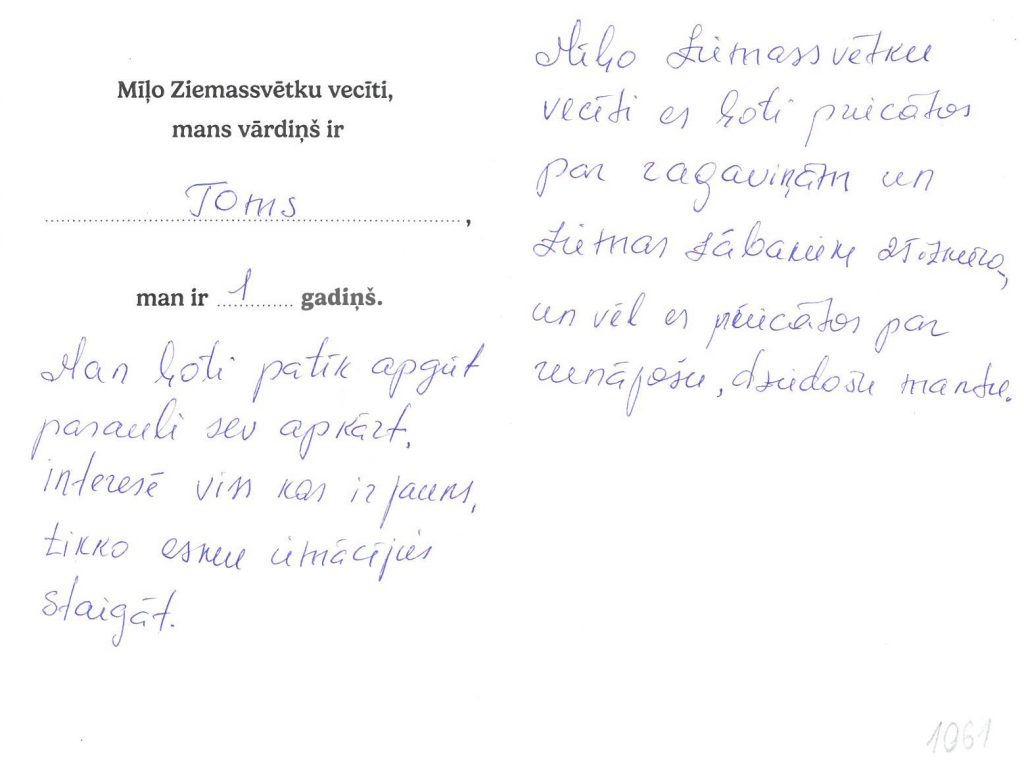 Mīļo Ziemassvētku vecīti,
mans vārdiņš ir
Toms,
man ir 1 gadiņš.
Man ļoti patīk apgūt
pasauli sev apkārt,
interesē viss kas ir jauns,
tikko esmu iemācījies
staigāt.
Mīļo Ziemassvētku
vecīti es ļoti priecātos
par ragaviņām un
ziemas zābakiem 25.izmēra,
un vēl es priecātos par
runājošu, dziedošu mantu.
1061